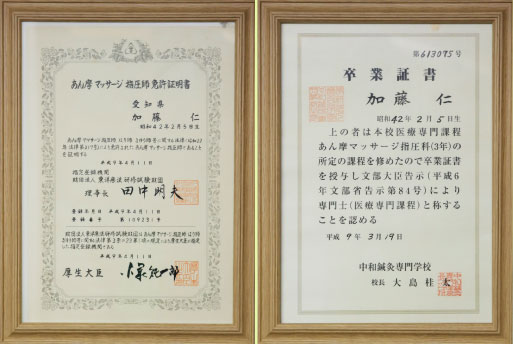 あん摩マッサージ指圧師免許証明書
愛知県
加藤 仁
昭和42年2月5日生
を証明する
平成9年4月11日
指定登録機関
財団法人 東洋療法研修試験財団
理事長 田中明夫
登録年月日 平成9年4月11日
登録番号 第109231号
定登録機関である
平成9年4月11日
厚生大臣 小泉純一郎
第613095号
卒業証書
加藤 仁
昭和42年2月5日生
上の者は本校医療専門課程
あん摩マッサージ指圧科(3年)の
所定の課程を修めたので卒業証書
を授与し文部大臣告示(平成6
年文部省告示第84号)により
専門士(医療専門課程)と称する
ことを認める
平成9年3月19日
中和鍼灸専門学校
校長 大島桂太